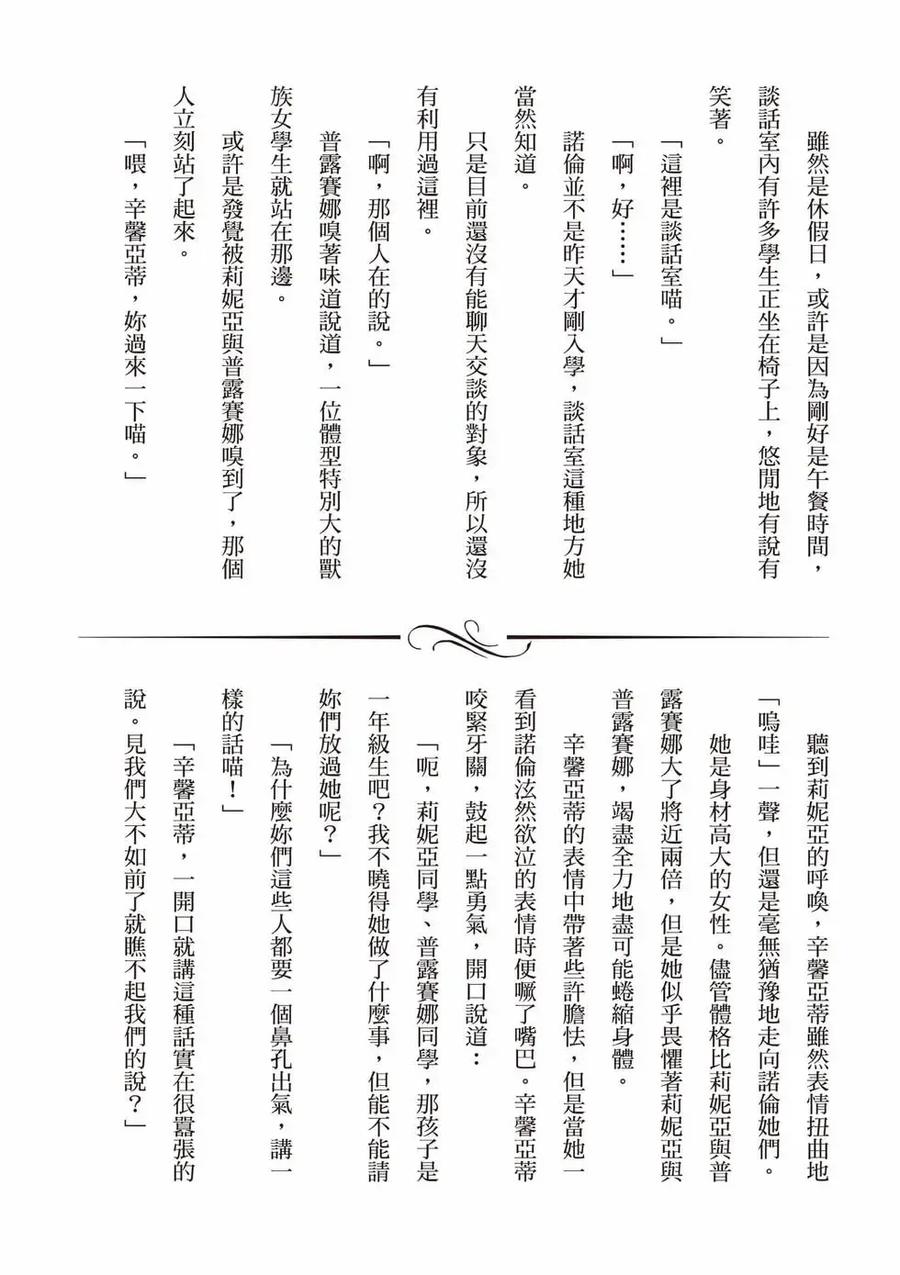 雖然是休假日，或許是因為剛好是午餐時間，
談話室內有許多學生正坐在椅子上，悠閒地有說有
笑著。
「這裡是談話室喵。」
「啊，好……」
諾倫並不是昨天才剛入學，談話室這種地方她
當然知道。
只是目前還沒有能聊天交談的對象，所以還沒
有利用過這裡。
「啊，那個人在的說。」
普露賽娜嗅著味道說道，一位體型特別大的獸
族女學生就站在那邊。
或許是發覺被莉妮亞與普露賽娜嗅到了，那個
人立刻站了起來。
「喂，辛馨亞蒂，妳過來一下喵。」
聽到莉妮亞的呼喚，辛馨亞蒂雖然表情扭曲地
「嗚哇」一聲，但還是毫無猶豫地走向諾倫她們。
她是身材高大的女性。儘管體格比莉妮亞與普
露賽娜大了將近兩倍，但是她似乎畏懼著莉妮亞與
普露賽娜，竭盡全力地盡可能蜷縮身體。
辛馨亞蒂的表情中帶著些許膽怯，但是當她一
看到諾倫泫然欲泣的表情時便噘了嘴巴。辛馨亞蒂
咬緊牙關，鼓起一點勇氣，開口說道：
「呃，莉妮亞同學、普露賽娜同學，那孩子是
一年級生吧？我不曉得她做了什麼事，但能不能請
妳們放過她呢？」
「為什麼妳們這些人都要一個鼻孔出氣，講一
樣的話喵！」
「辛馨亞蒂，一開口就講這種話實在很囂張的
說。見我們大不如前了就瞧不起我們的說？」